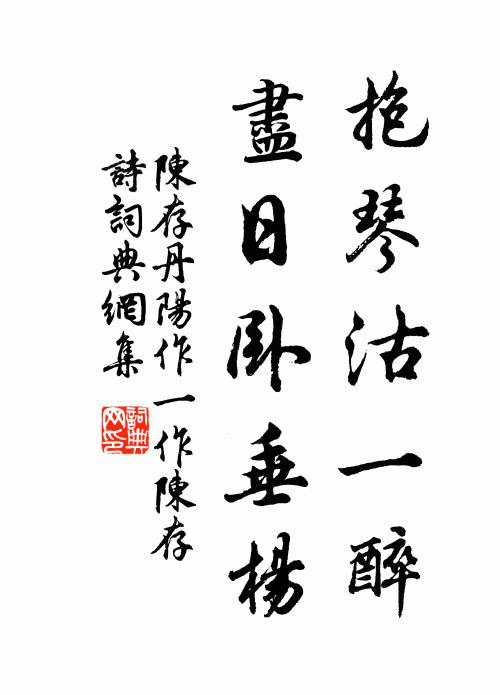 抱琴沽一醉
盡日臥垂楊
陳存丹陽作一作陳存
詩詞典網集
詞典網印